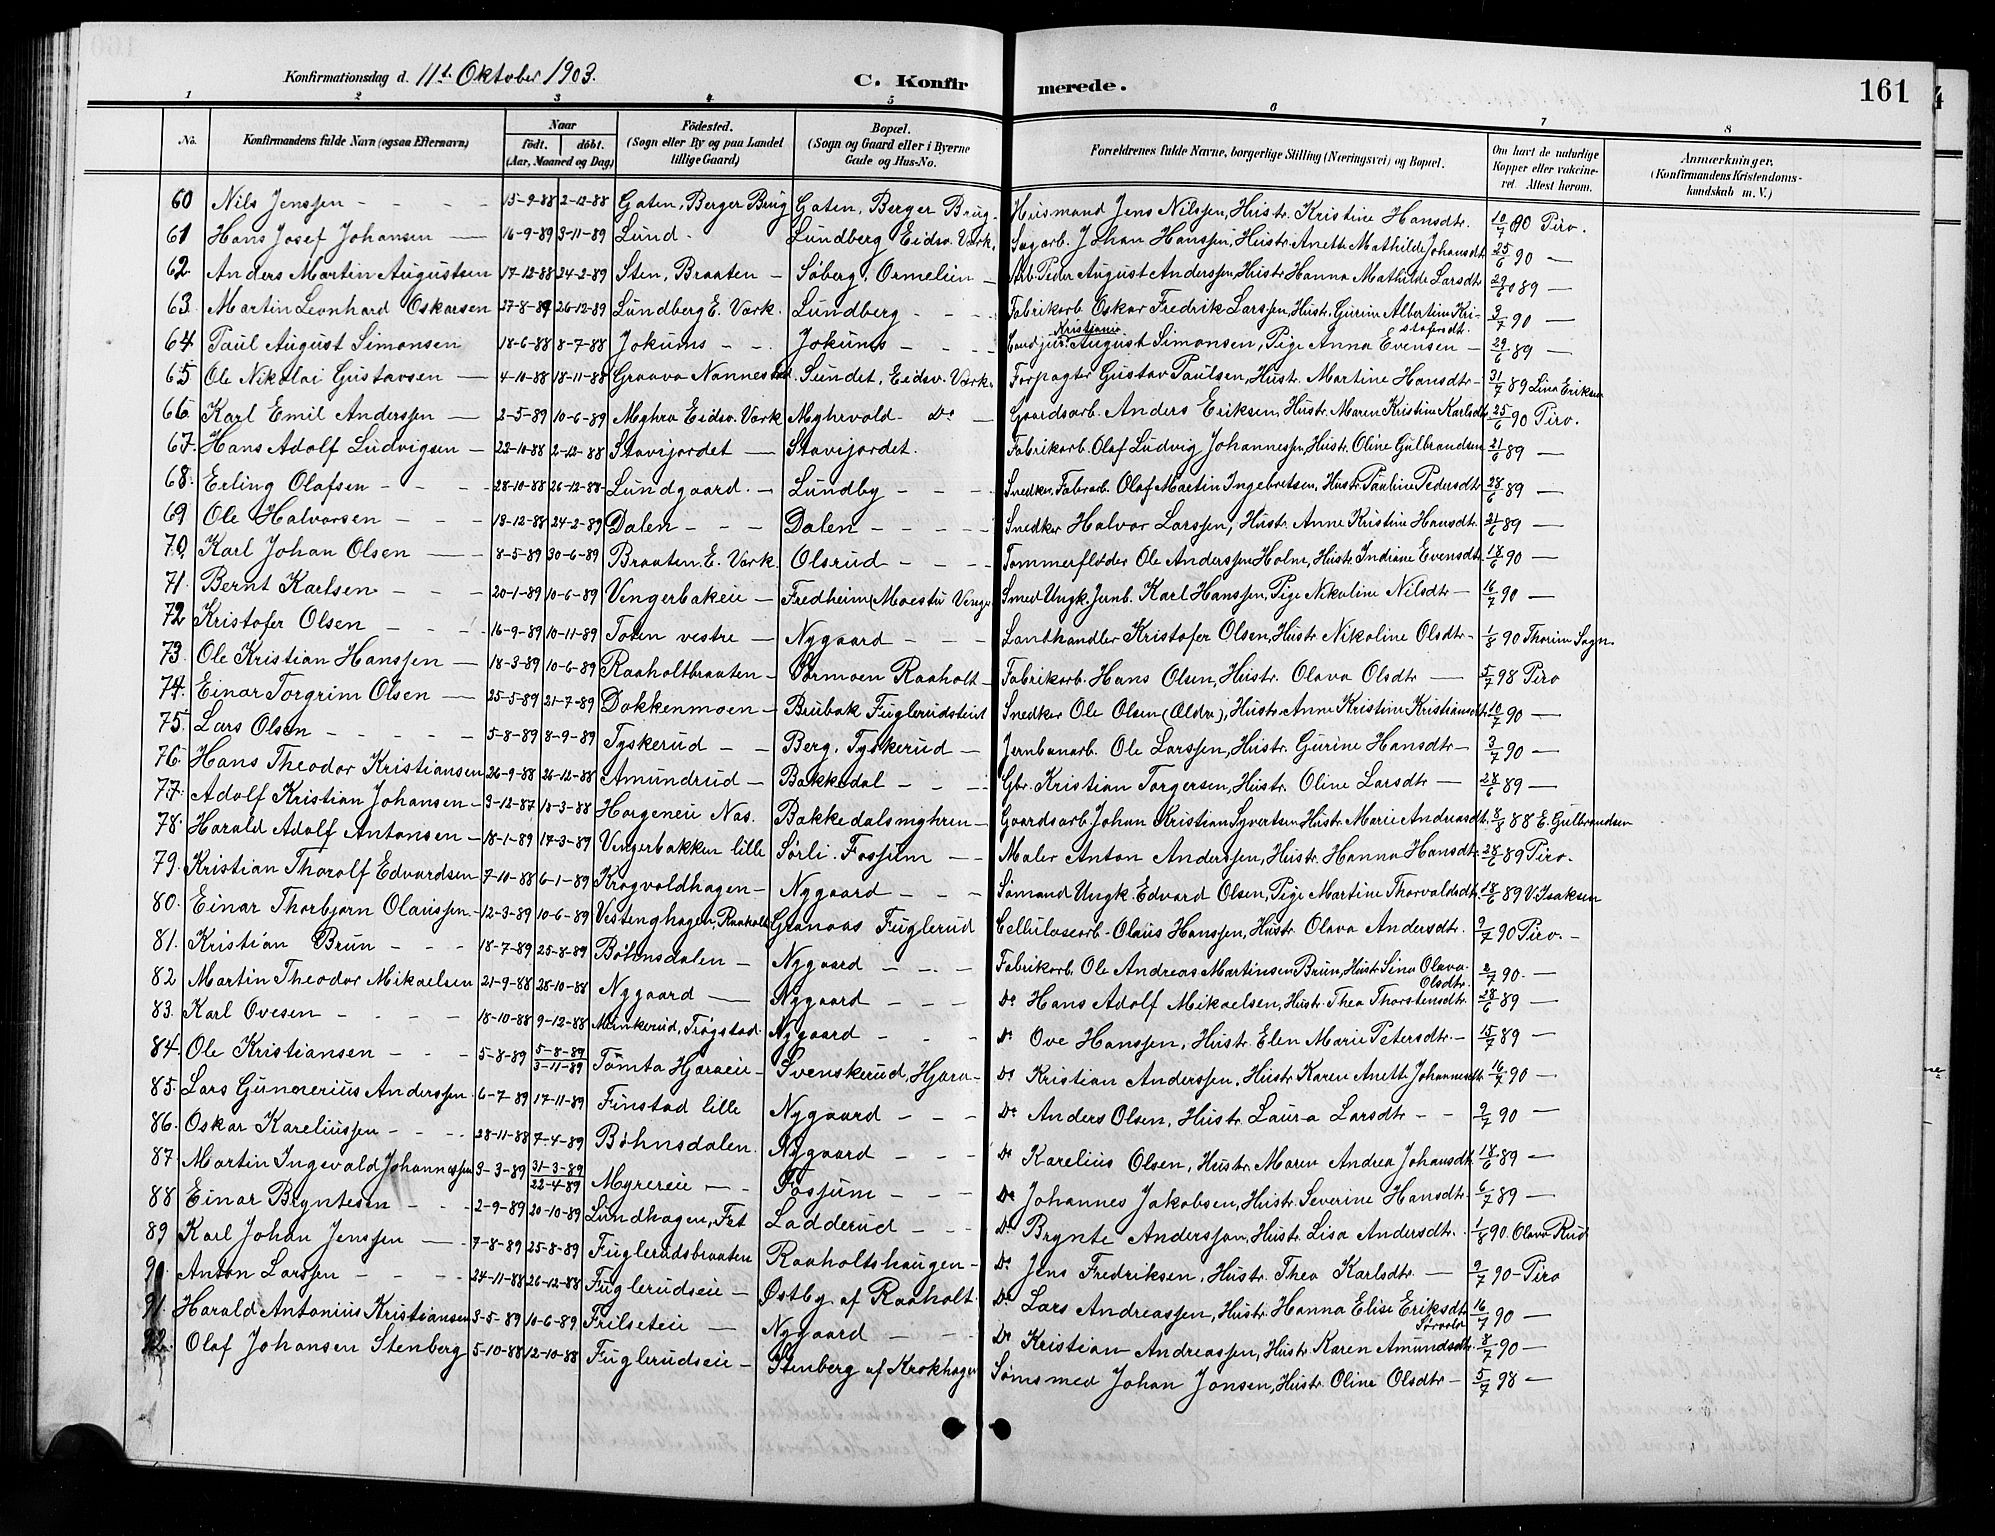 Konfirmationsdag d. 11t Oktober 1903.
C. Konfirmerede.
161
1 2 3 4 5 6 7 8
No. Konfirmandens fulde Navn (ogsaa Efternavn) Naar født. døbt. (Aar, Maaned og Dag) Fødested. (Sogn eller By og paa Landet tillige Gaard) Bopæl. (Sogn og Gaard eller i Byerne Gade og Hus-No. Forældrenes fulde Navne, borgerlige Stilling (Næringsvei) og Bopæl. Om havt de naturlige Kopper eller vakcineret. Attest herom. Anmærkninger. (Konfirmandens Kristendomskundskab m. V.)
60 Nils Jenssen - 15-9-88 2-12-88 Gaten, Berger Brug Gaten, Berger Brug. Husmand Jens Nilssen, Hustr. Kristine Hansdtr. 10/7 90 Piro.
61 Hans Josef Johansen — 16-9-89 3-11-89 Lund. Lundberg Eidsv. Værk. Sagarb. Johan Hanssen, Hustr. Anette Mathilde Johansdt 25/6 90 —
62 Anders Martin Augustsen 17-12-88 24-2-89 Sten, Braaten - Søberg, Ormelien - Arb. Peder August Anderssen, Hustr. Hanna Mathilde Larsdtr 29/6 89 —
63. Martin Leonhard Oskarsen 27-8-89 26-12-89 Lundberg E. Værk. Lundberg - Fabrikarb. Oskar Fredrik Larssen, Hustr. Gurine Albertine Kristofersdt. 3/7 90 —
64. Paul August Simonsen 18-6-88 8-7-88 Jokums - Jokums - Cand jur. Kristiania August Simonsen, Pige Anna Evensen - 29/6 89 —
65 Ole Nikolai Gustavsen — 4-10-88 18-11-88 Graava Nannestad. Sundet, Eidsv. Værk. Forpagter Gustav Paulsen, Hustr. Martine Hansdtr- 31/7 89 Lina Eriksen
66. Karl Emil Anderssen — 2-5-89 10-6-89 Myhra Eidsv. Værk Myhrvold. Do - Gaardsarb. Anders Eriksen, Hustr. Maren Kristine Karlsdtr. 25/6 90 Piro.
67. Hans Adolf Ludvigsen — 22-10-88 2-12-88 Stavijordet — Stavijordet. Fabrikarb. Olaf Ludvig Johannessen, Hustr. Oline Gulbrandsen 21/6 89 —
68. Erling Olafsen - 28-10-88 26-12-88 Lundgaard. - Lundby - Snedker, Fabrarb. Olaf Martin Ingebretsen, Hustr. Pauline Pedersdtr 28/6 89 —
69 Ole Halvorsen - 18-12-88 24-2-89 Dalen - Dalen - Snedker Halvor Larssen, Hustr. Anne Kristine Hansdtr. 21/6 89 —
70. Karl Johan Olsen — 8-5-89 30-6-89 Braaten. E. Værk. Olsrud - Tommerfløder Ole Anderssen Holm, Hustr. Indiane Evensdtr. 18/6 90 —
71. Bernt Karlsen - 20-1-89 10-6-89 Vengerbakeie - Fredheim (Moestu Venger Smed Ungk. Jernb. Karl Hanssen, Pige Nikoline Nilsdtr — 16/7 90 —
72. Kristofer Olsen - 16-9-89 10-11-89 Toten vestre — Nygaard - Landhandler Kristofer Olsen, Hustr. Nikoline Olsdtr- 1/8 90 Thorine Sogn.
73. Ole Kristian Hanssen — 18-3-89 10-6-89 Raaholtbraaten - Ørmoen Raaholt - Fabrikarb. Hans Olsen, Hustr. Olava Olsdtr — 5/7 98 Piro
74. Einar Torgrim Olsen — 25-5-89 21-7-89 Dokkenmoen - Brubak Fuglerudsteiet Snedker Ole Olsen (Aldra), Hustr. Anne Kristine Kristiansdt. 10/7 90 —
75. Lars Olsen - 5-8-89 8-9-89 Tyskerud - Berg, Tyskerud — Jernbanarb. Ole Larssen, Hustr. Gurine Hansdtr - 3/7 90 —
76. Hans Theodor Kristiansen 26-9-88 26-12-88 Amundrud - Bakkedal - Gbr. Kristian Torgersen, Hustr. Oline Larsdtr — 28/6 89 —
77. Adolf Kristian Johansen - 3-12-87 18-3-88 Horgeneie Nas. Bakkedalsmyhren - Gaardsarb. Johan Kristian Syvertsen Hustr. Marie Andreasdt. 8/8 88 E. Gulbrandsen
78. Harald Adolf Antonsen - 18-1-89 17-3-89 Vengerbakken lille Sørli. Fossum - Maler Anton Anderssen, Hustr. Hanna Hansdtr. 28/6 89 Piro.
79. Kristian Thorolf Edvardsen 7-10-88 6-1-89 Krogvoldhagen - Nygaard - Sømand Ungk. Edvard Olsen, Pige Martine Thorvaldsdtr. 18/6 89 V. Isaksen
80. Einar Thorbjørn Olaussen - 12-3-89 10-6-89 Vestenghagen, Raaholt Granaas Fuglerud Cellulosearb. Olaus Hanssen, Hustr. Olava Andersdtr. 9/7 90 Piro. -
81. Kristian Brun - 18-7-89 25-8-89 Bøhnsdalen - Nygaard - Fabrikarb. Ole Andreas Martinsen Brun, Hustr. Sina Olava Olsdtr. 2/7 90. —
82 Martin Theodor Mikaelsen 21-9-88 28-10-88 Nygaard — Nygaard - Do Hans Adolf Mikaelsen, Hustr. Thea Thorstensdtr. 28/6 89 —
83. Karl Ovesen - 18-10-88 9-12-88 Munkerud, Trøgstad. Nygaard - Do Ove Hanssen, Hustr. Elen Marie Petersdtr. - 15/7 89 —
84. Ole Kristiansen - 5-8-89 5-8-89 3-11-89 Tømta Hjeraeie - Svenskerud, Hjera - Do Kristian Anderssen, Hustr. Karen Anette Johannesdtr 16/7 90 —
85. Lars Gunnerius Anderssen. 6-7-89 17-11-89 Finstad lille Nygaard - Do Anders Olsen, Hustr. Laura Larsdtr - 9/7 90 —
86. Oskar Kareliussen - 28-11-88 7-4-89 Bøhnsdalen. Nygaard - Do Karelius Olsen, Hustr. Maren Andrea Johansdt. 18/6 89 —
87. Martin Ingevald Johannessen 3-3-89 31-3-89 22-4-89 Myrereie — Fossum - Do Johannes Jakobsen, Hustr. Severine Hansdtr. 6/7 89 —
88 Einar Bryntesen - 2-9-89 20-10-89 Lundhagen, Fet Ladderud - Do Brynte Anderssen, Hustr. Lisa Andersdtr. 1/8 90. Olava Rud
89 Karl Johan Jenssen — 7-8-89 25-8-89 Fuglerudsbraaten Raaholtshaugen - Do Jens Fredriksen, Hustr. Thea Karlsdtr. — 9/7 90 - Piro
90. Anton Larssen - 24-11-88 26-12-88 Fuglerudseie - Østby af Raaholt. Do Lars Andreassen, Hustr. Hanna Elise Eriksdt. 16/7 90 —
91. Harald Antonius Kristiansen 3-5-89 10-6-89 Frilseteie — Nygaard - Do Kristian Andreassen, Hustr. Karen Amundsdtr. 8/7 90 —
92. Olaf Johansen Stenberg 5-10-88 12-10-88 Fuglerudseie - Stenberg af Krokhagen Sømsmed Johan Jonsen, Hustr. Oline Olsdtr - 5/7 98 —